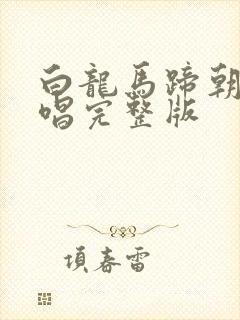 白龍馬蹄朝
唱完整版
項春雷